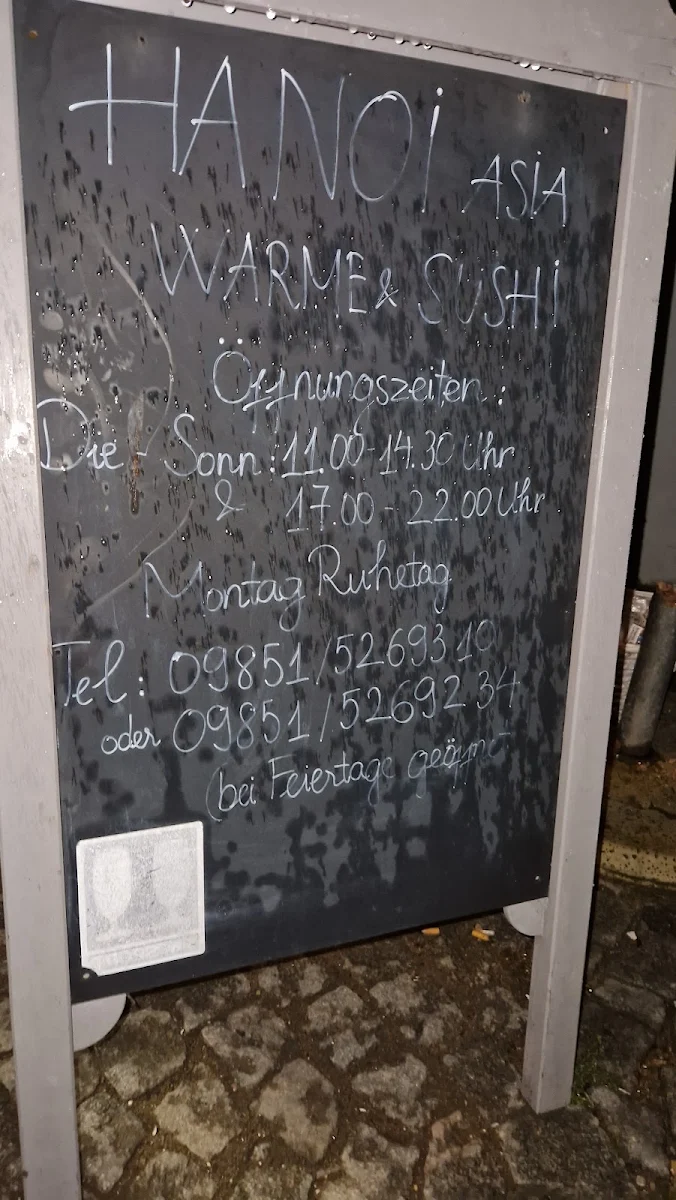 HANOi ASiA
WARME & SUSHi
Öffnungszeiten:
Die - Sonn: 11.00-14.30 Uhr
& 17.00 - 22.00 Uhr
Montag Ruhetag
Tel: 09851/5269310
oder 09851/5269234
(bei Feiertage geöffnet